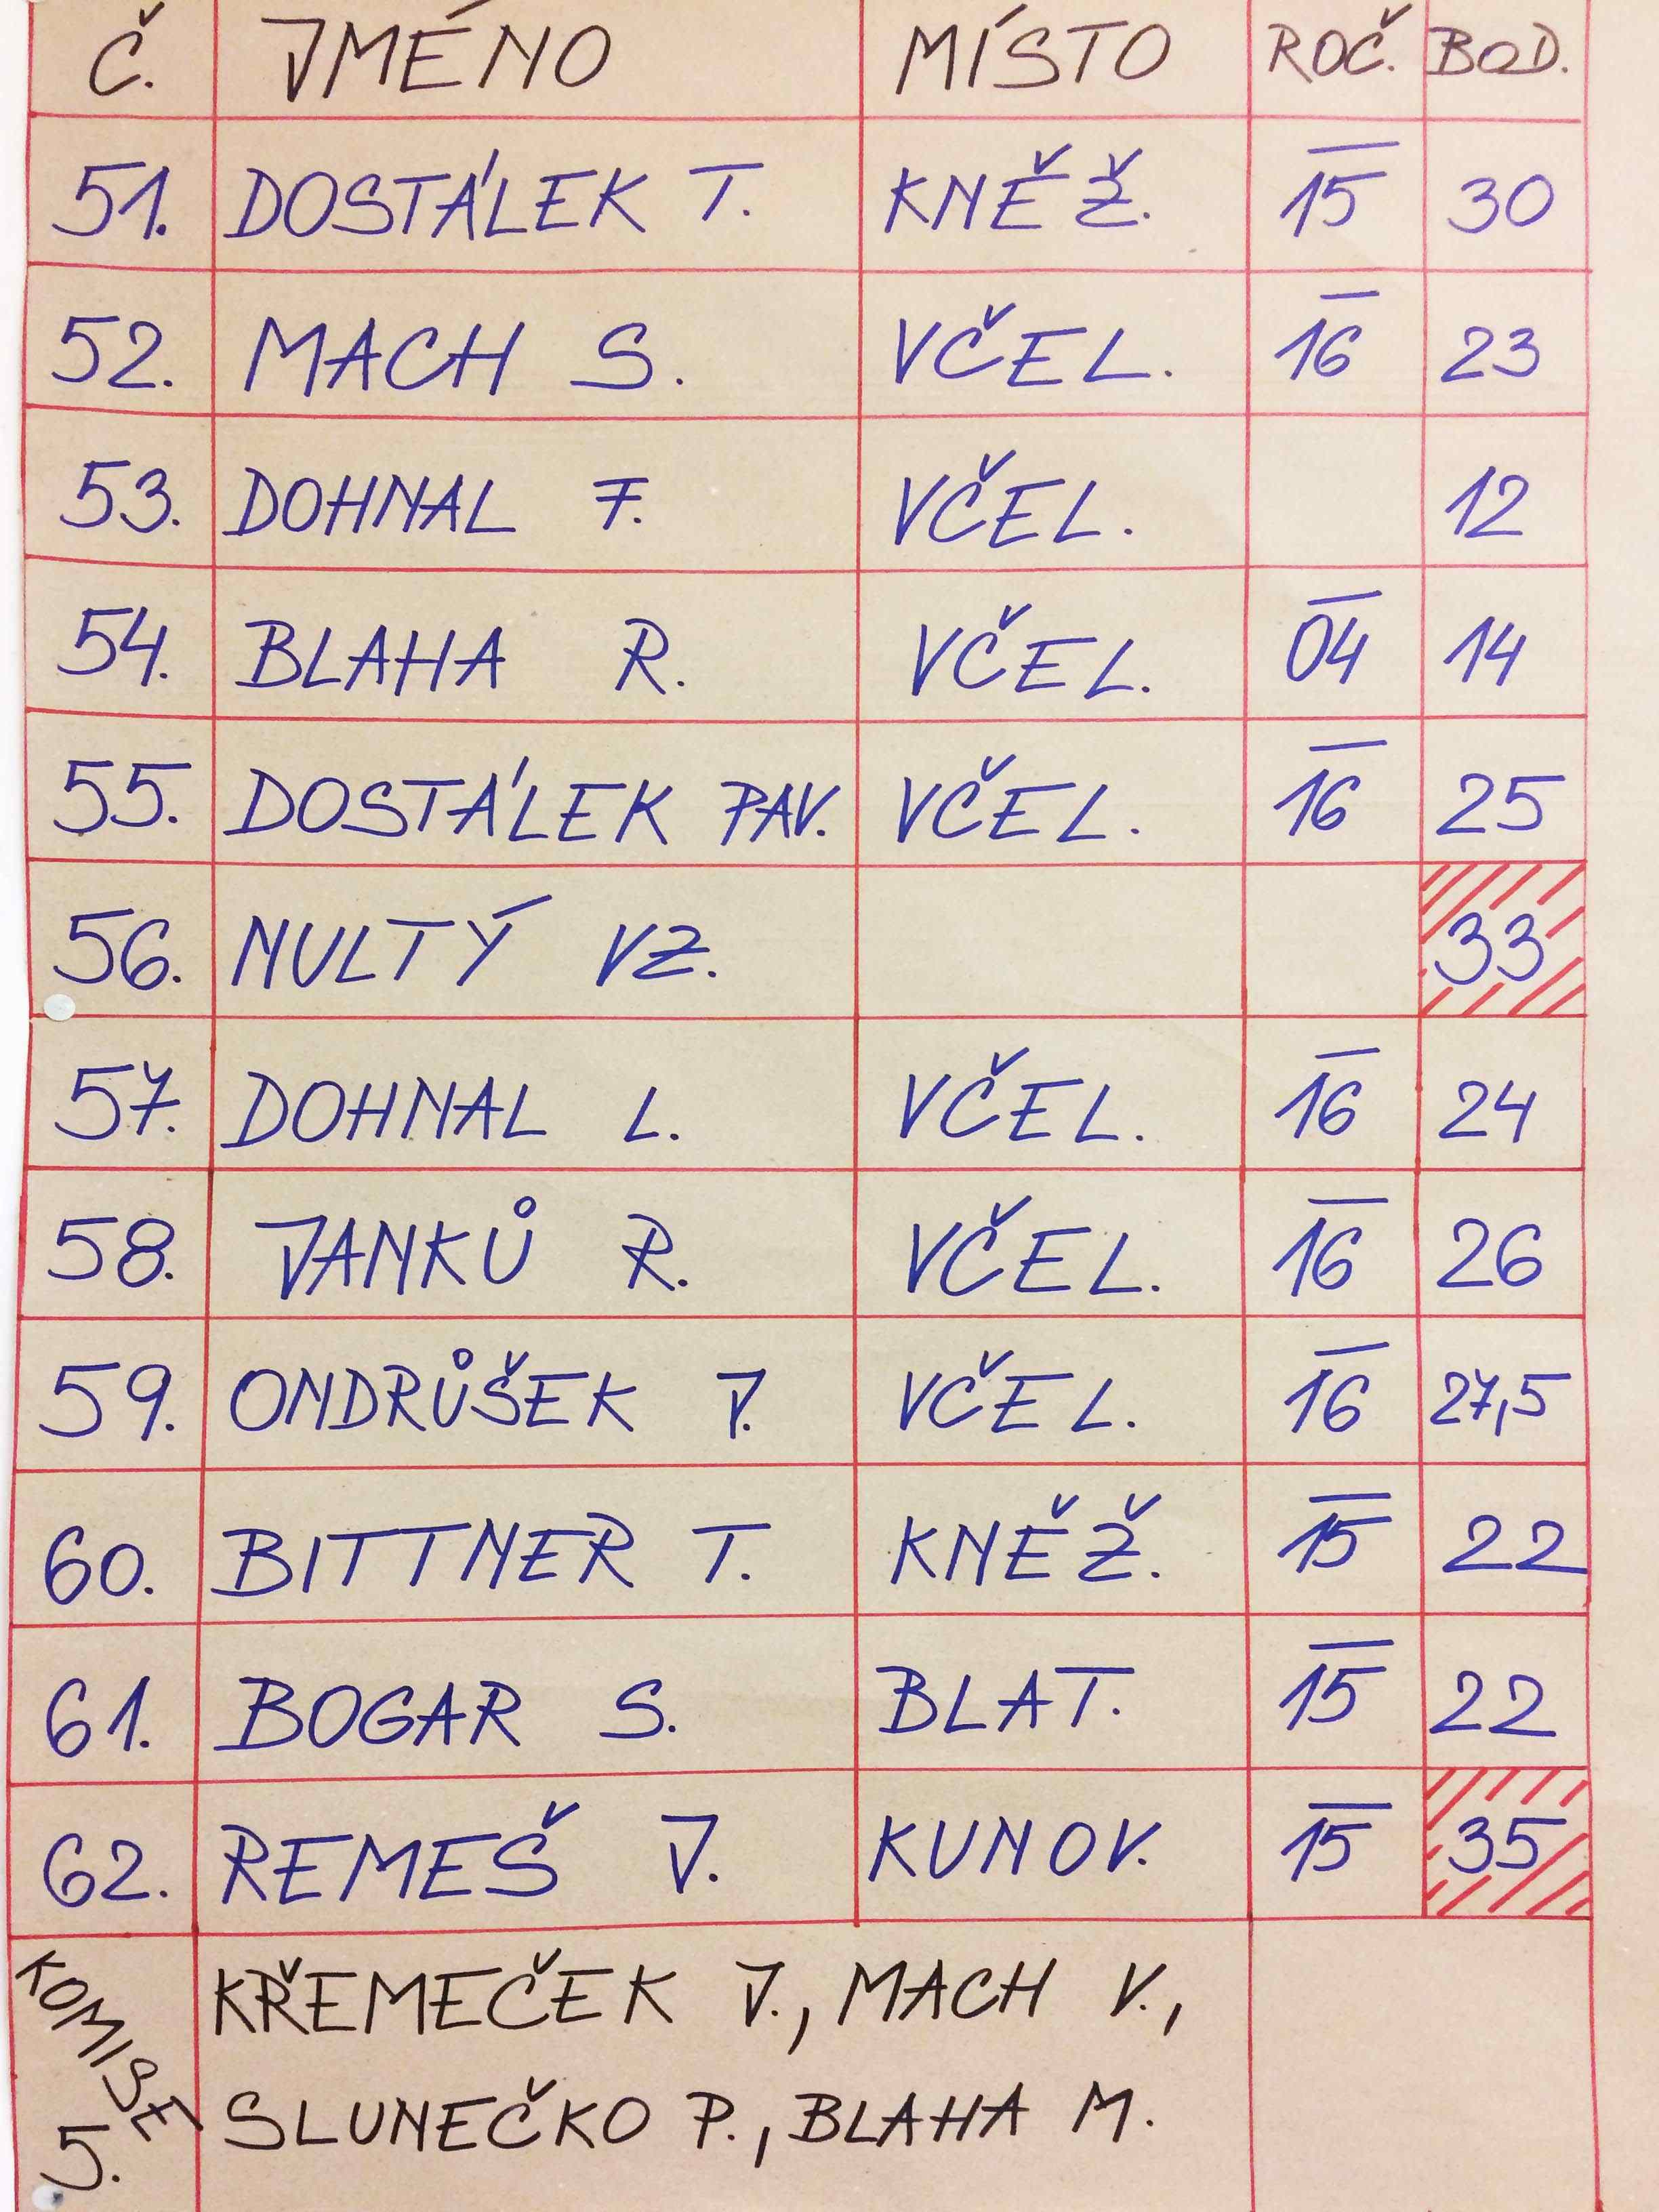 Č. JMÉNO MÍSTO ROČ. BOD.
51. DOSTÁLEK T. KNĚŽ. 15 30
52. MACH S. VČEL. 16 23
53. DOHNAL F. VČEL. 12
54. BLAHA R. VČEL. 04 14
55. DOSTÁLEK PAV. VČEL. 16 25
56. NULTÝ VZ. 33
57. DOHNAL L. VČEL. 16 24
58. JANKŮ R. VČEL. 16 26
59. ONDRŮŠEK J. VČEL. 16 27,5
60. BITTNER T. KNĚŽ. 15 22
61. BOGAR S. BLAT. 15 22
62. REMEŠ J. KUNOV. 15 35
KOMISE 5. KŘEMEČEK J., MACH V.,
SLUNEČKO P., BLAHA M.